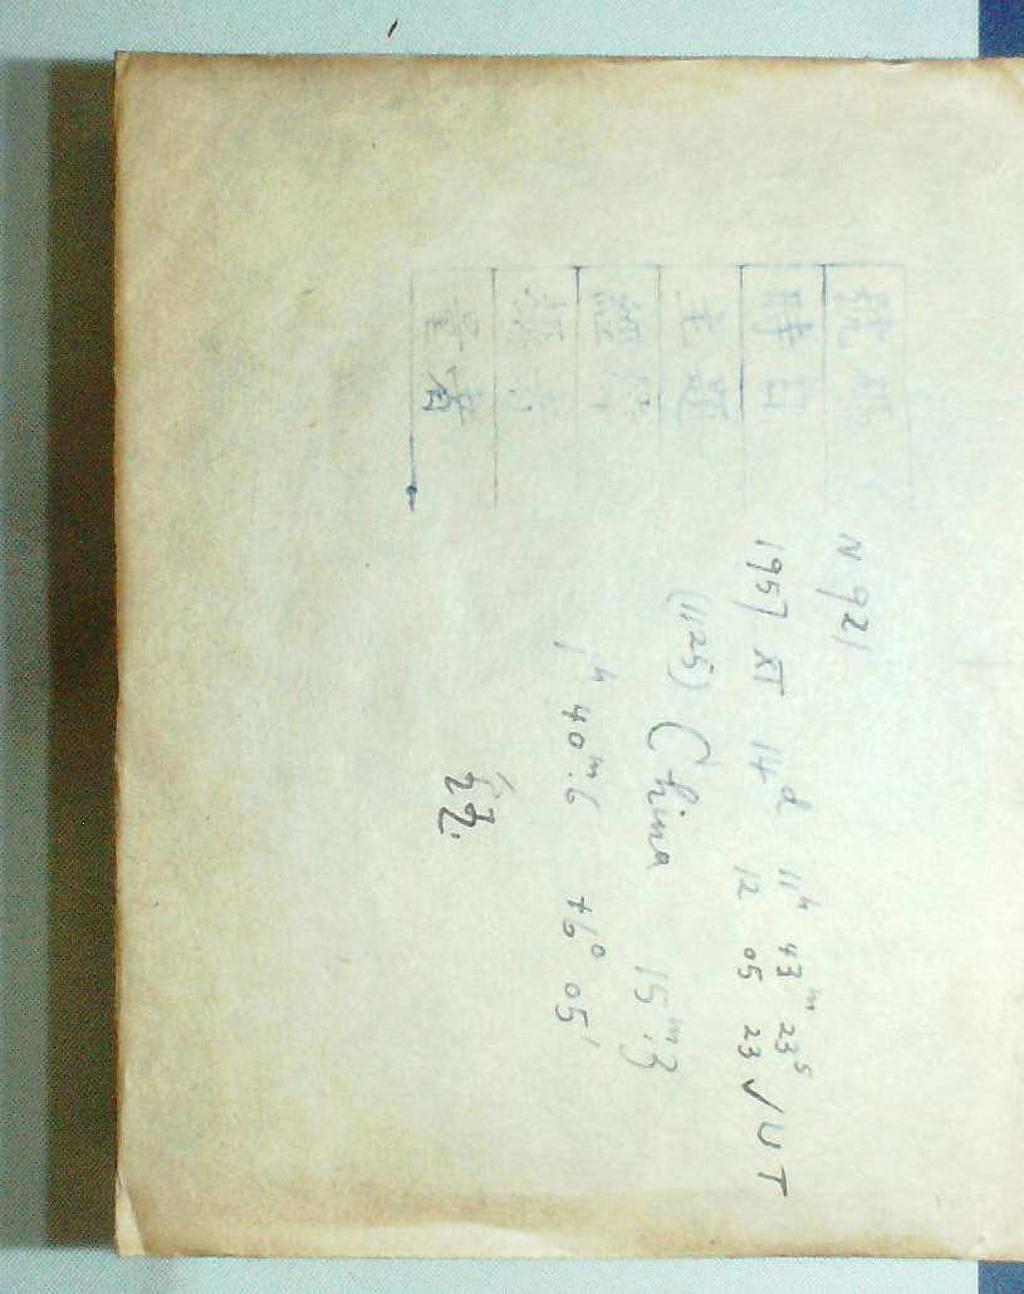 N 921
時日 1957 XI 14ᵈ 11ʰ 43ᵐ 23ˢ
12 05 23 ✓ UT
主題 (1125) China 15ᵐ.3
1ʰ 40ᵐ.6 +6° 05'
量者